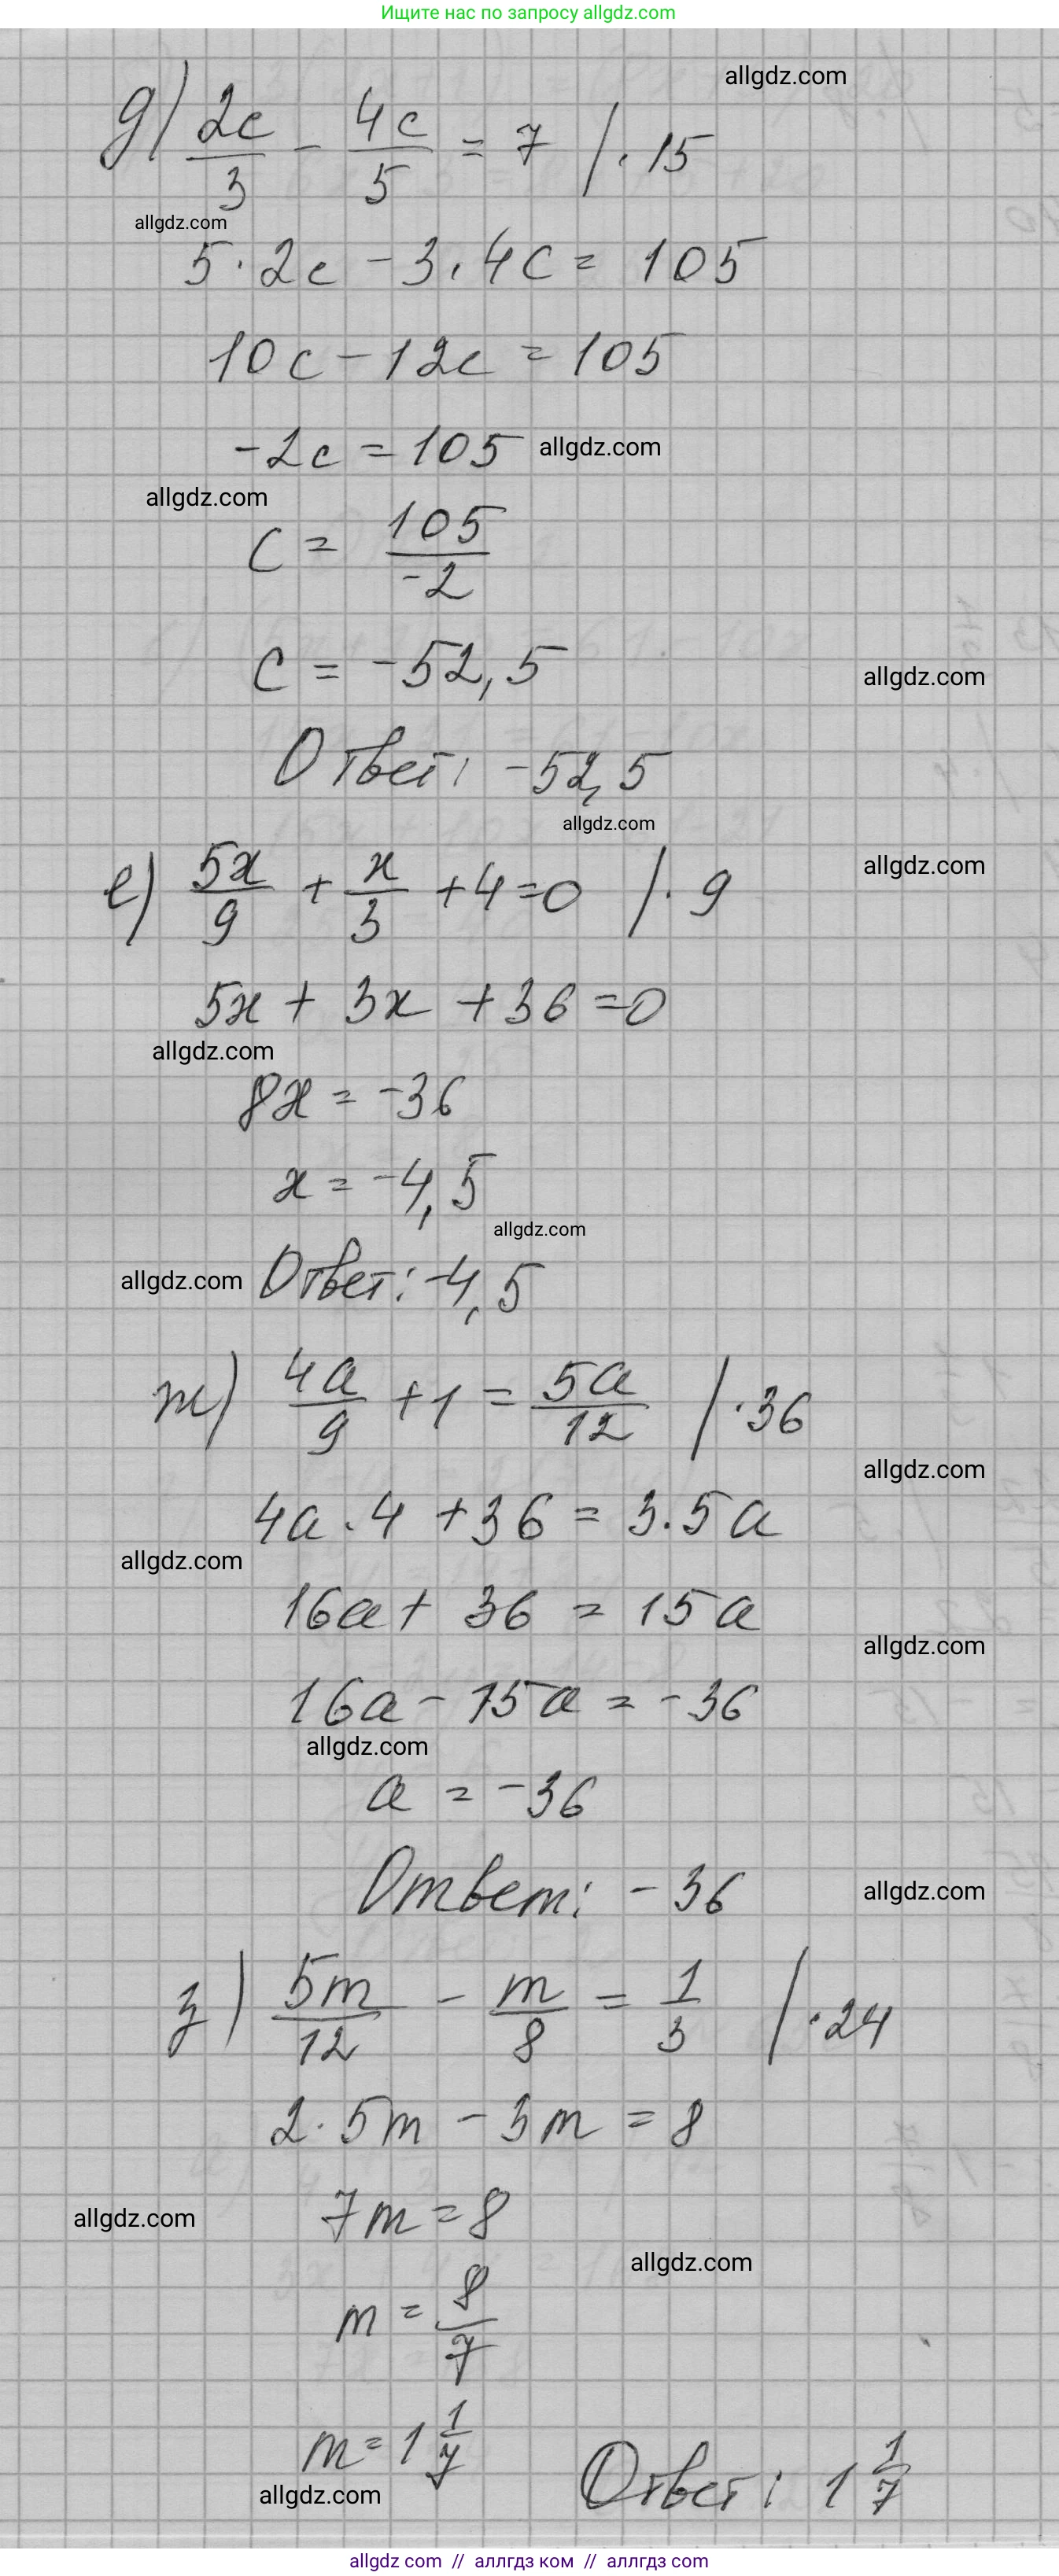 Ищите нас по запросу allgdz.com
allgdz.com
д) 2c/3 - 4c/5 = 7 /·15
allgdz.com
5·2c - 3·4c = 105
10c - 12c = 105
-2c = 105 allgdz.com
allgdz.com
c = 105/-2
c = -52,5
allgdz.com
Ответ: -52,5
allgdz.com
allgdz.com
е) 5x/9 + x/3 + 4 = 0 /·9
5x + 3x + 36 = 0
allgdz.com
8x = -36
x = -4,5
allgdz.com
allgdz.com Ответ: -4,5
ж) 4a/9 + 1 = 5a/12 /·36
allgdz.com
4a·4 + 36 = 3·5a
allgdz.com
16a + 36 = 15a
allgdz.com
16a - 15a = -36
allgdz.com
a = -36
Ответ: -36 allgdz.com
з) 5m/12 - m/8 = 1/3 /·24
2·5m - 3m = 8
allgdz.com 7m = 8
allgdz.com
m = 8/7
m = 1 1/7
allgdz.com Ответ: 1 1/7
allgdz com // аллгдз ком // аллгдз com